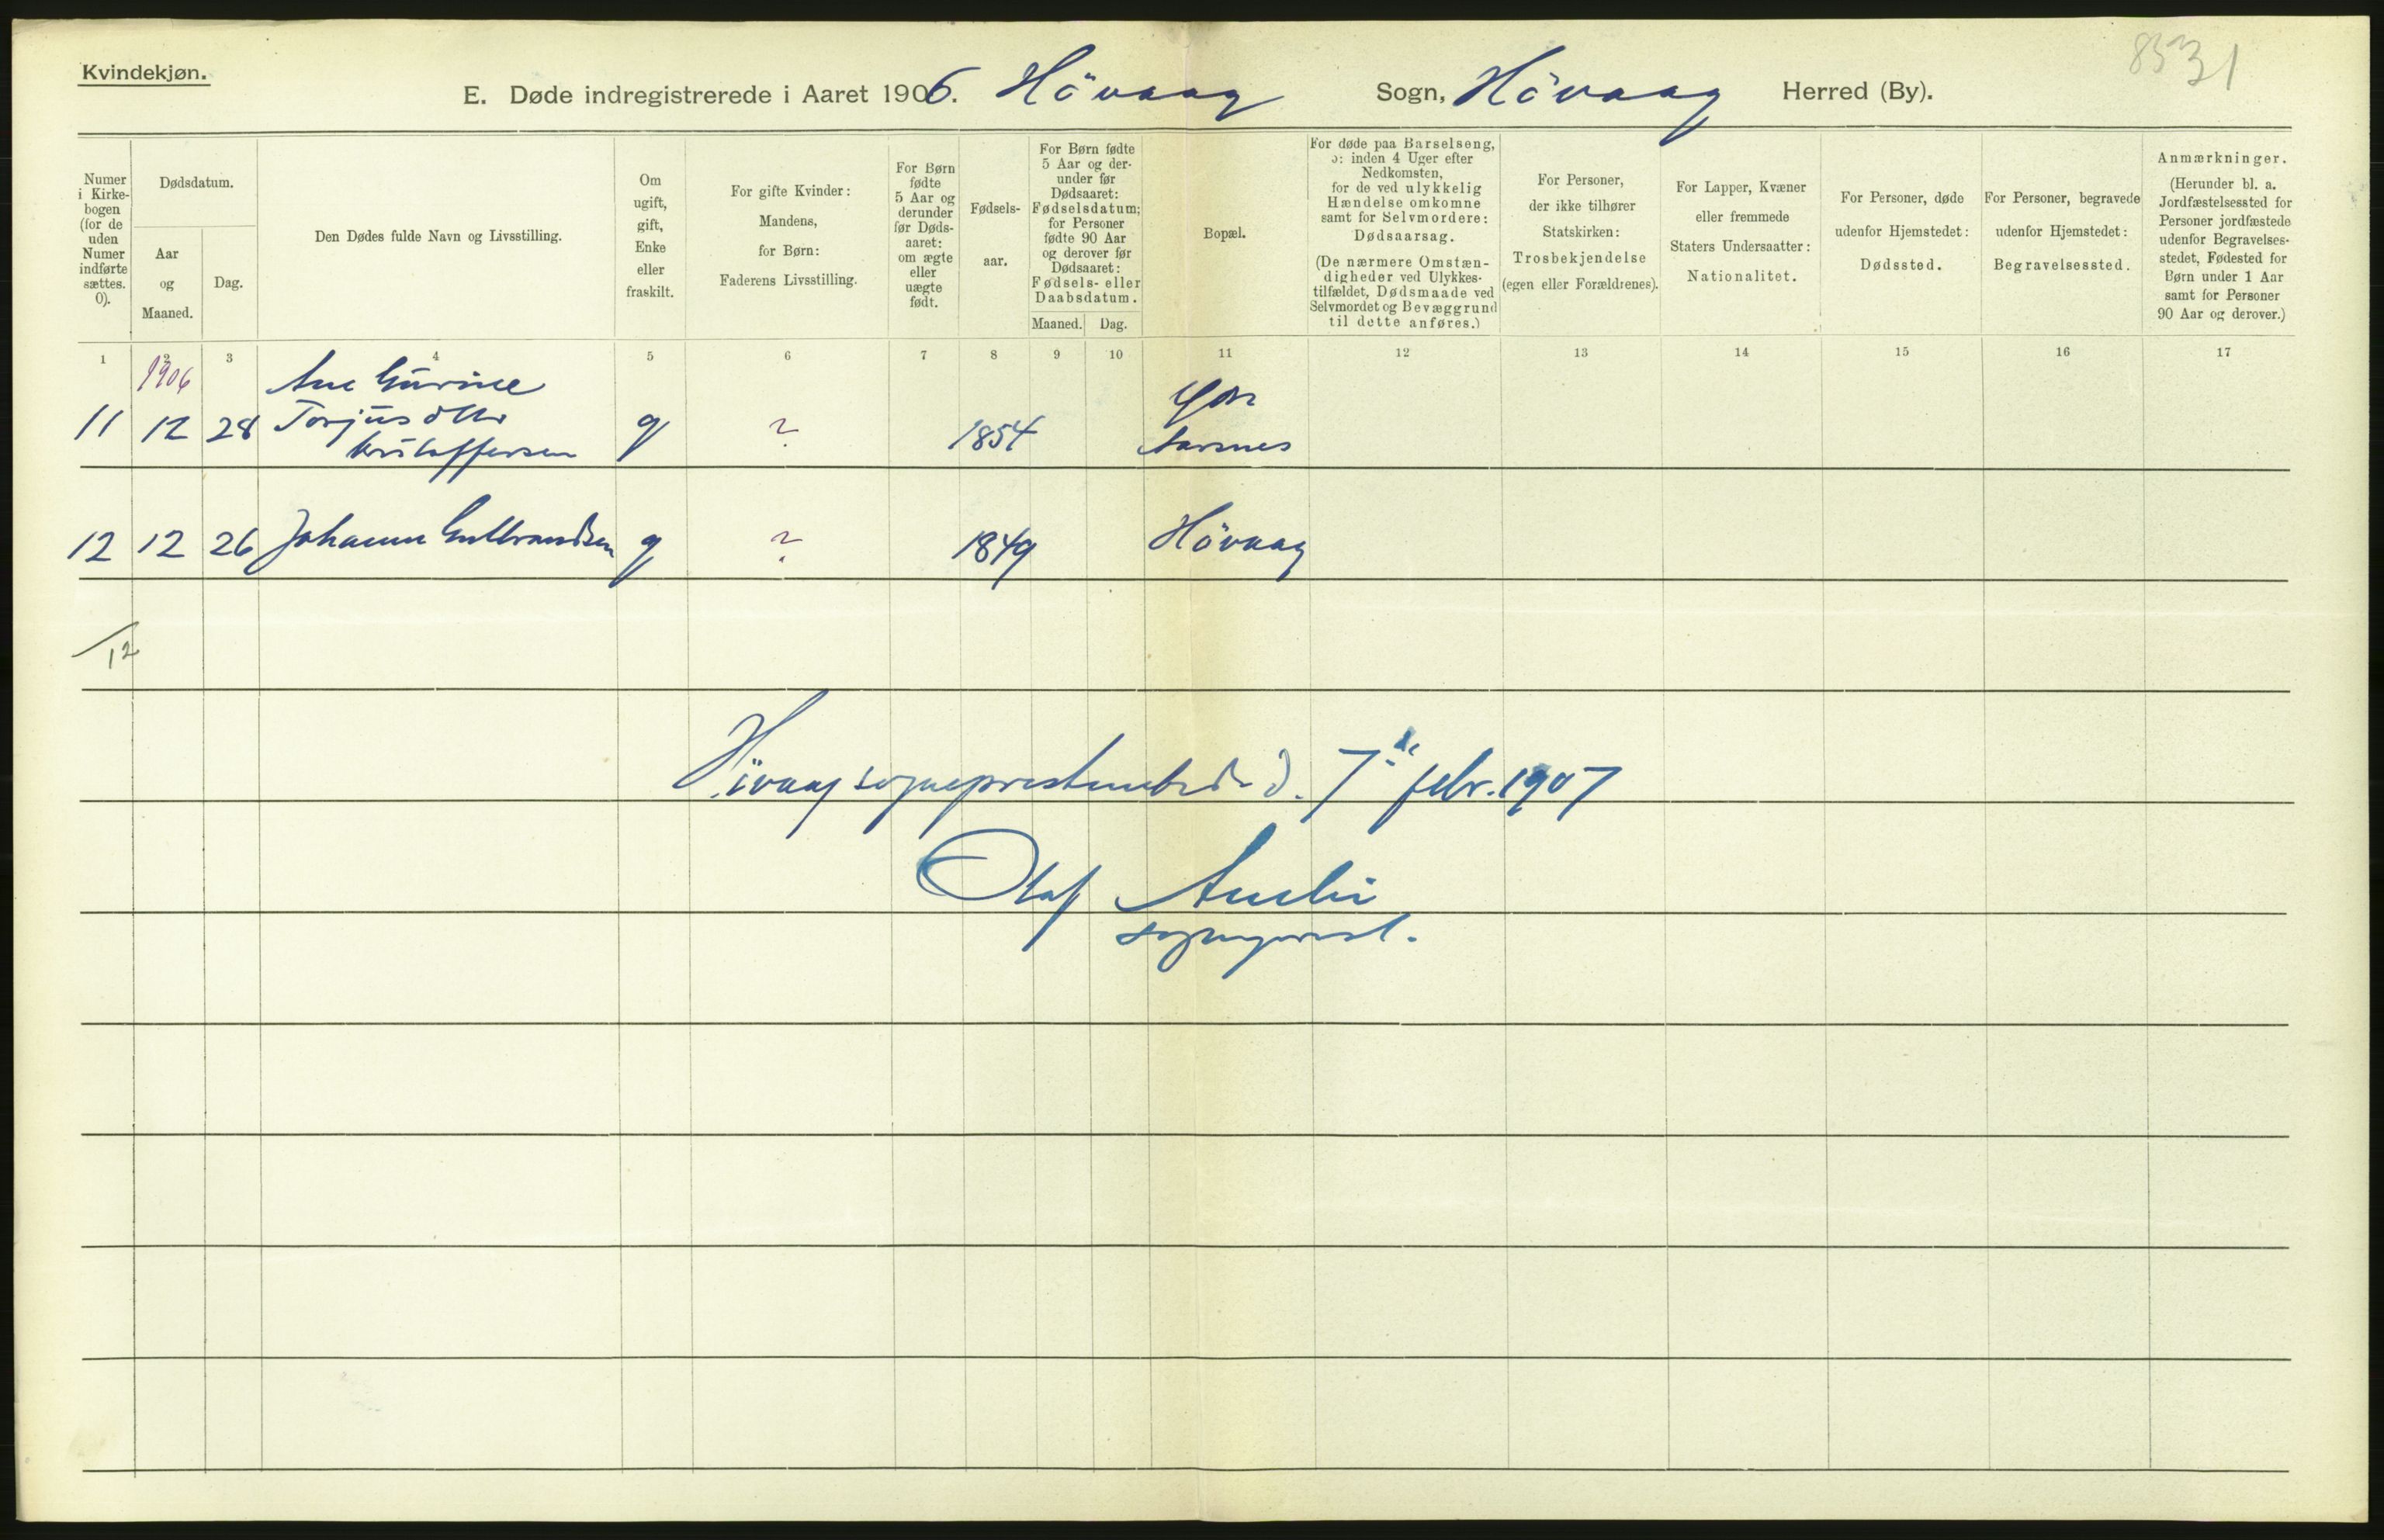 Kvindekjøn.
8531
E. Døde indregistrerede i Aaret 1906. Hövaag Sogn, Hövaag Herred (By).
Numer i Kirkebogen (for de uden Numer indførte sættes. 0).
Dødsdatum.
Aar og Maaned.
Dag.
Den Dødes fulde Navn og Livsstilling.
Om ugift, gift, Enke eller fraskilt.
For gifte Kvinder: Mandens, for Børn: Faderens Livsstilling.
For Børn fødte 5 Aar og derunder før Dødsaaret: om ægte eller uægte født.
Fødselsaar.
For Børn fødte 5 Aar og derunder før Dødsaaret: Fødselsdatum; for Personer fødte 90 Aar og derover før Dødsaaret: Fødsels- eller Daabsdatum.
Maaned. Dag.
Bopæl.
For døde paa Barselseng, ɔ: inden 4 Uger efter Nedkomsten, for de ved ulykkelig Hændelse omkomne samt for Selvmordere: Dødsaarsag.
(De nærmere Omstændigheder ved Ulykkestilfældet, Dødsmaade ved Selvmordet og Bevæggrund til dette anføres.)
For Personer, der ikke tilhører Statskirken: Trosbekjendelse (egen eller Forældrenes).
For Lapper, Kvæner eller fremmede Staters Undersaatter: Nationalitet.
For Personer, døde udenfor Hjemstedet: Dødssted.
For Personer, begravede udenfor Hjemstedet: Begravelsessted.
Anmærkninger.
(Herunder bl. a. Jordfæstelsessted for Personer jordfæstede udenfor Begravelsesstedet, Fødested for Børn under 1 Aar samt for Personer 90 Aar og derover.)
1 2 3 4 5 6 7 8 9 10 11 12 13 14 15 16 17
1906 Ane Gurine
11 12 28 Torjusdtter g ? 1854
Kristoffersen
12 12 26 Johanne Gulbrandsen g ? 1849 Hövaag
12
Hövaag sogneprestembede d. 7de febr. 1907
Olaf
sogneprest.